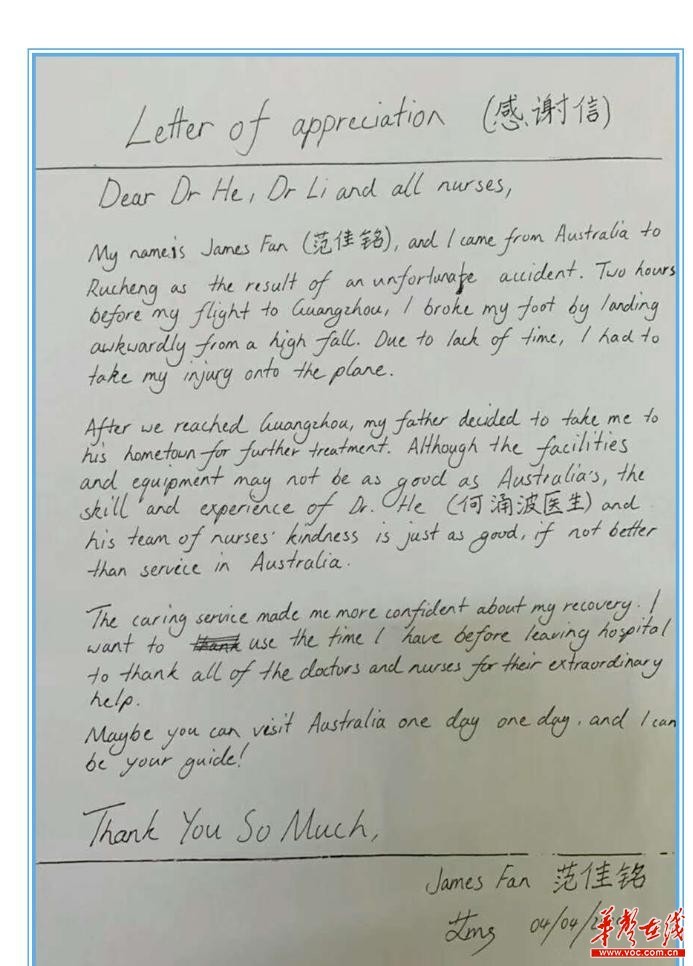 Letter of appreciation (感谢信)
Dear Dr He, Dr Li and all nurses,
My name is James Fan (范佳铭), and I came from Australia to
Rucheng as the result of an unfortunate accident. Two hours
before my flight to Guangzhou, I broke my foot by landing
awkwardly from a high fall. Due to lack of time, I had to
take my injury onto the plane.
After we reached Guangzhou, my father decided to take me to
his hometown for further treatment. Although the facilities
and equipment may not be as good as Australia's, the
skill and experience of Dr. He (何涌波医生) and
his team of nurses' kindness is just as good, if not better
than service in Australia.
The caring service made me more confident about my recovery. I
want to use the time I have before leaving hospital
to thank all of the doctors and nurses for their extraordinary
help.
Maybe you can visit Australia one day one day, and I can
be your guide!
Thank You So Much,
James Fan 范佳铭
04/04/
华声在线
www.voc.com.cn